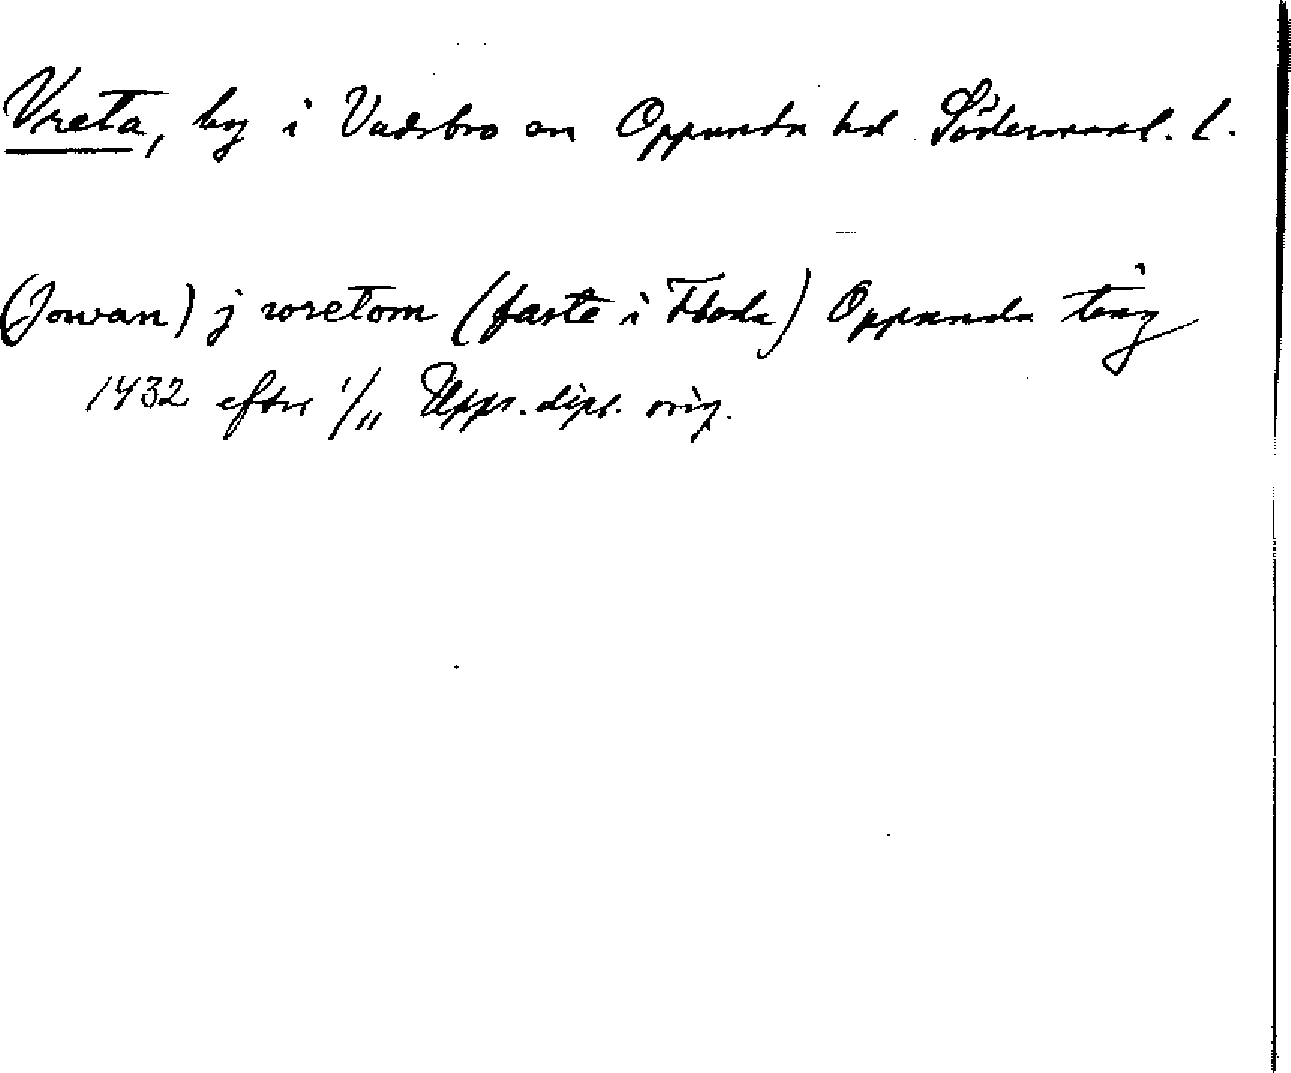 Vreta, by i Vadsbro sn Oppunda hd Södermanl. l.
(Jowan) j wretom (faste i Floda) Oppunda ting
1432 eftr 1/11 Upps. dipl. orig.